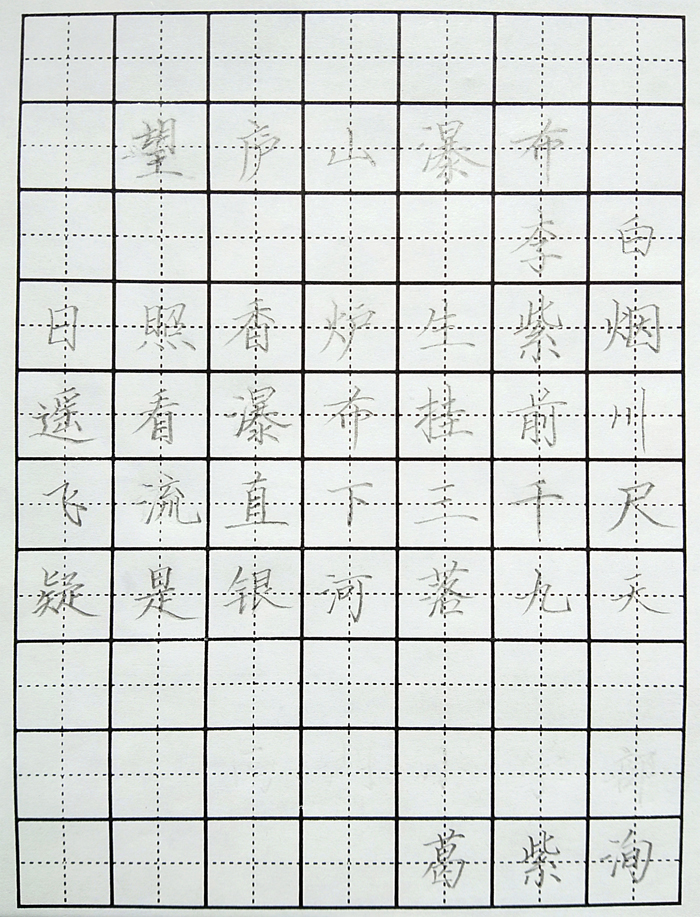 望庐山瀑布
李白
日照香炉生紫烟
遥看瀑布挂前川
飞流直下三千尺
疑是银河落九天
葛紫洵